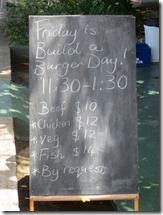 Friday is
Build a
Burger Day!
11:30-1:30
Beef $10
*Chicken $12
*Veg $12
*Fish $14
*By request